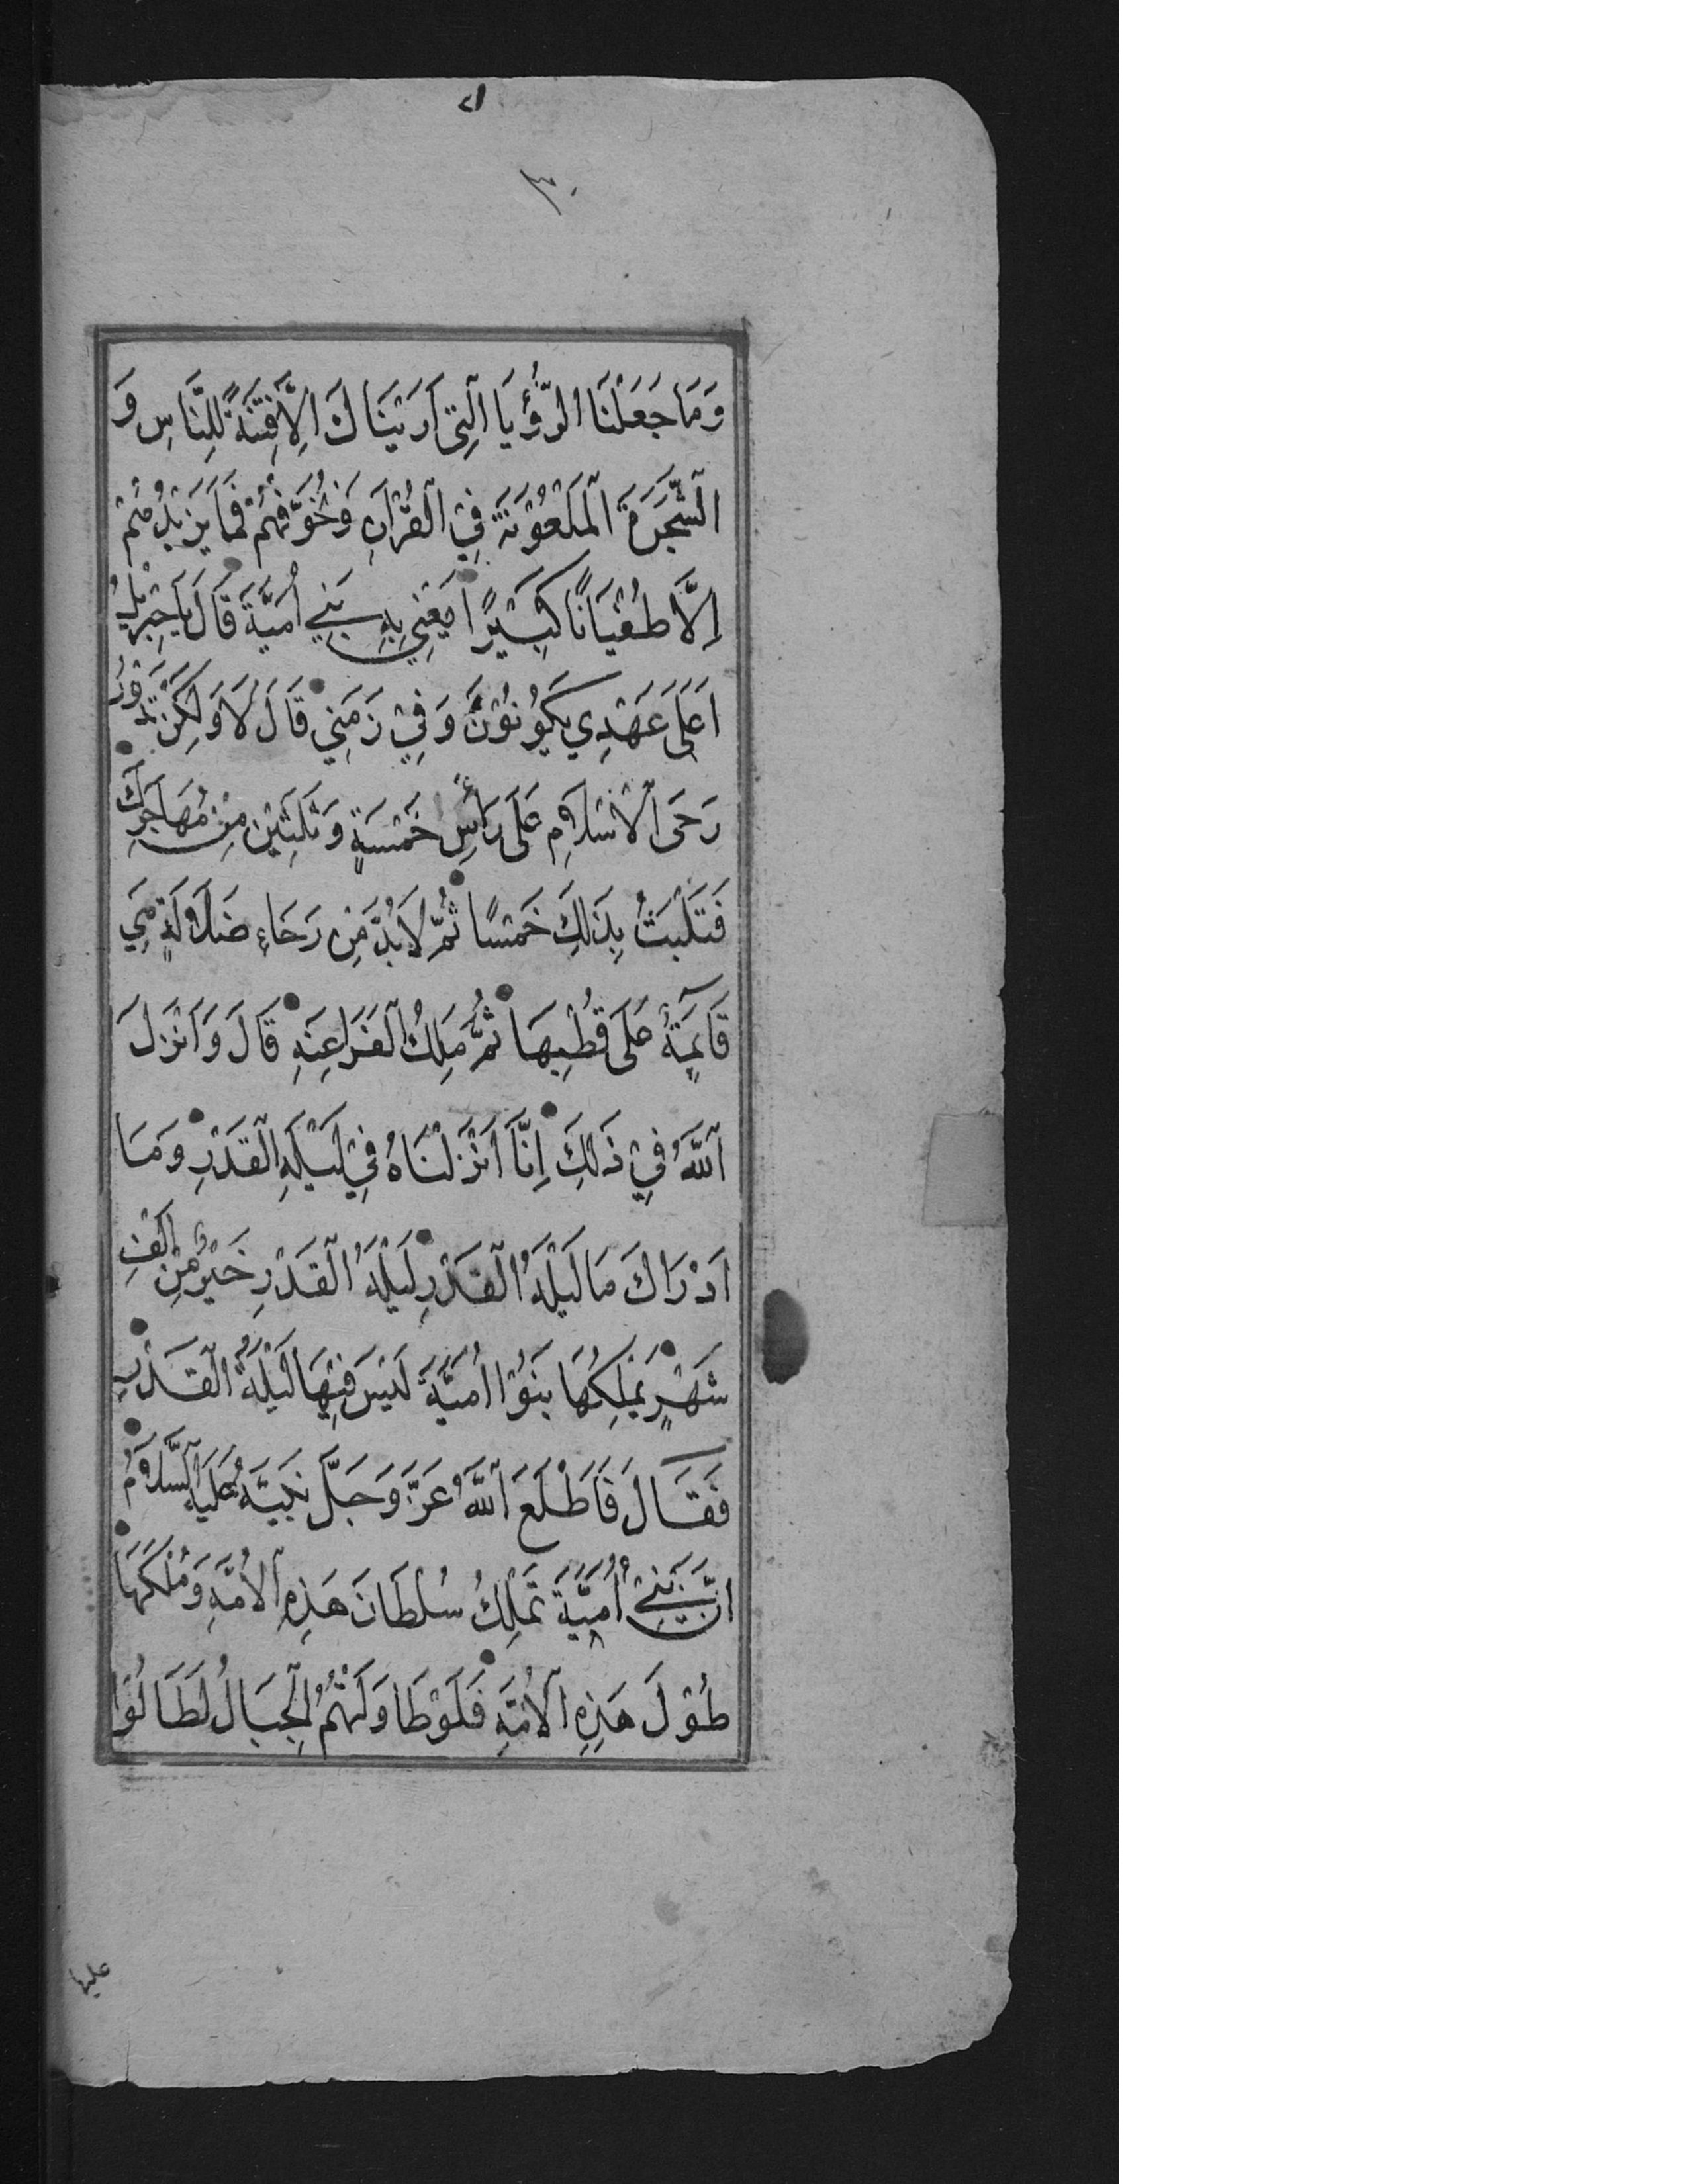 ٣٠
وَمَا جَعَلْنَا الرُّؤْيَا الَّتِى اَرَيْنَاكَ اِلَّا فِتْنَةً لِلنَّاسِ وَ
الشَّجَرَةَ الْمَلْعُوْنَةَ فِى الْقُرْآنِ وَنُخَوِّفُهُمْ فَمَا يَزِيْدُهُمْ
اِلَّا طُغْيَانًا كَبِيْرًا يَعْنِي بِهِ بَنِي اُمَيَّةَ قَالَ يَا جِبْرِيْلُ
اَعَلَى عَهْدِي يَكُوْنُوْنَ وَفِيْ زَمَنِيْ قَالَ لَا وَلَكِنْ تَدُوْرُ
رَحَى الْاِسْلَامِ عَلَى رَأْسِ خَمْسَةٍ وَثَلَثِيْنَ مِنْ مُهَاجَرِكَ
فَتَلْبَثُ بِذَلِكَ خَمْسًا ثُمَّ لَا بُدَّ مِنْ رَحَاءِ ضَلَالَةٍ هِيَ
قَآئِمَةٌ عَلَى قُطْبِهَا ثُمَّ مَلِكُ الْفَرَاعِنَةِ قَالَ وَاَنْزَلَ
اللّٰهُ فِيْ ذَلِكَ اِنَّا اَنْزَلْنَاهُ فِيْ لَيْلَةِ الْقَدْرِ وَمَا
اَدْرَاكَ مَا لَيْلَةُ الْقَدْرِ لَيْلَةُ الْقَدْرِ خَيْرٌ مِنْ اَلْفِ
شَهْرٍ يَمْلِكُهَا بَنُوْا اُمَيَّةَ لَيْسَ فِيْهَا لَيْلَةُ الْقَدْرِ
فَقَالَ فَاَطْلَعَ اللّٰهُ عَزَّ وَجَلَّ نَبِيَّهُ عَلَيْهِ السَّلَامُ
اِنَّ بَنِيْ اُمَيَّةَ تَمْلِكُ سُلْطَانَ هَذِهِ الْاُمَّةِ وَمُلْكَهَا
طُوْلَ هَذِهِ الْاُمَّةِ فَلَوْ طَاوَلَتْهُمُ الْجِبَالُ لَطَالُوْا
عليها